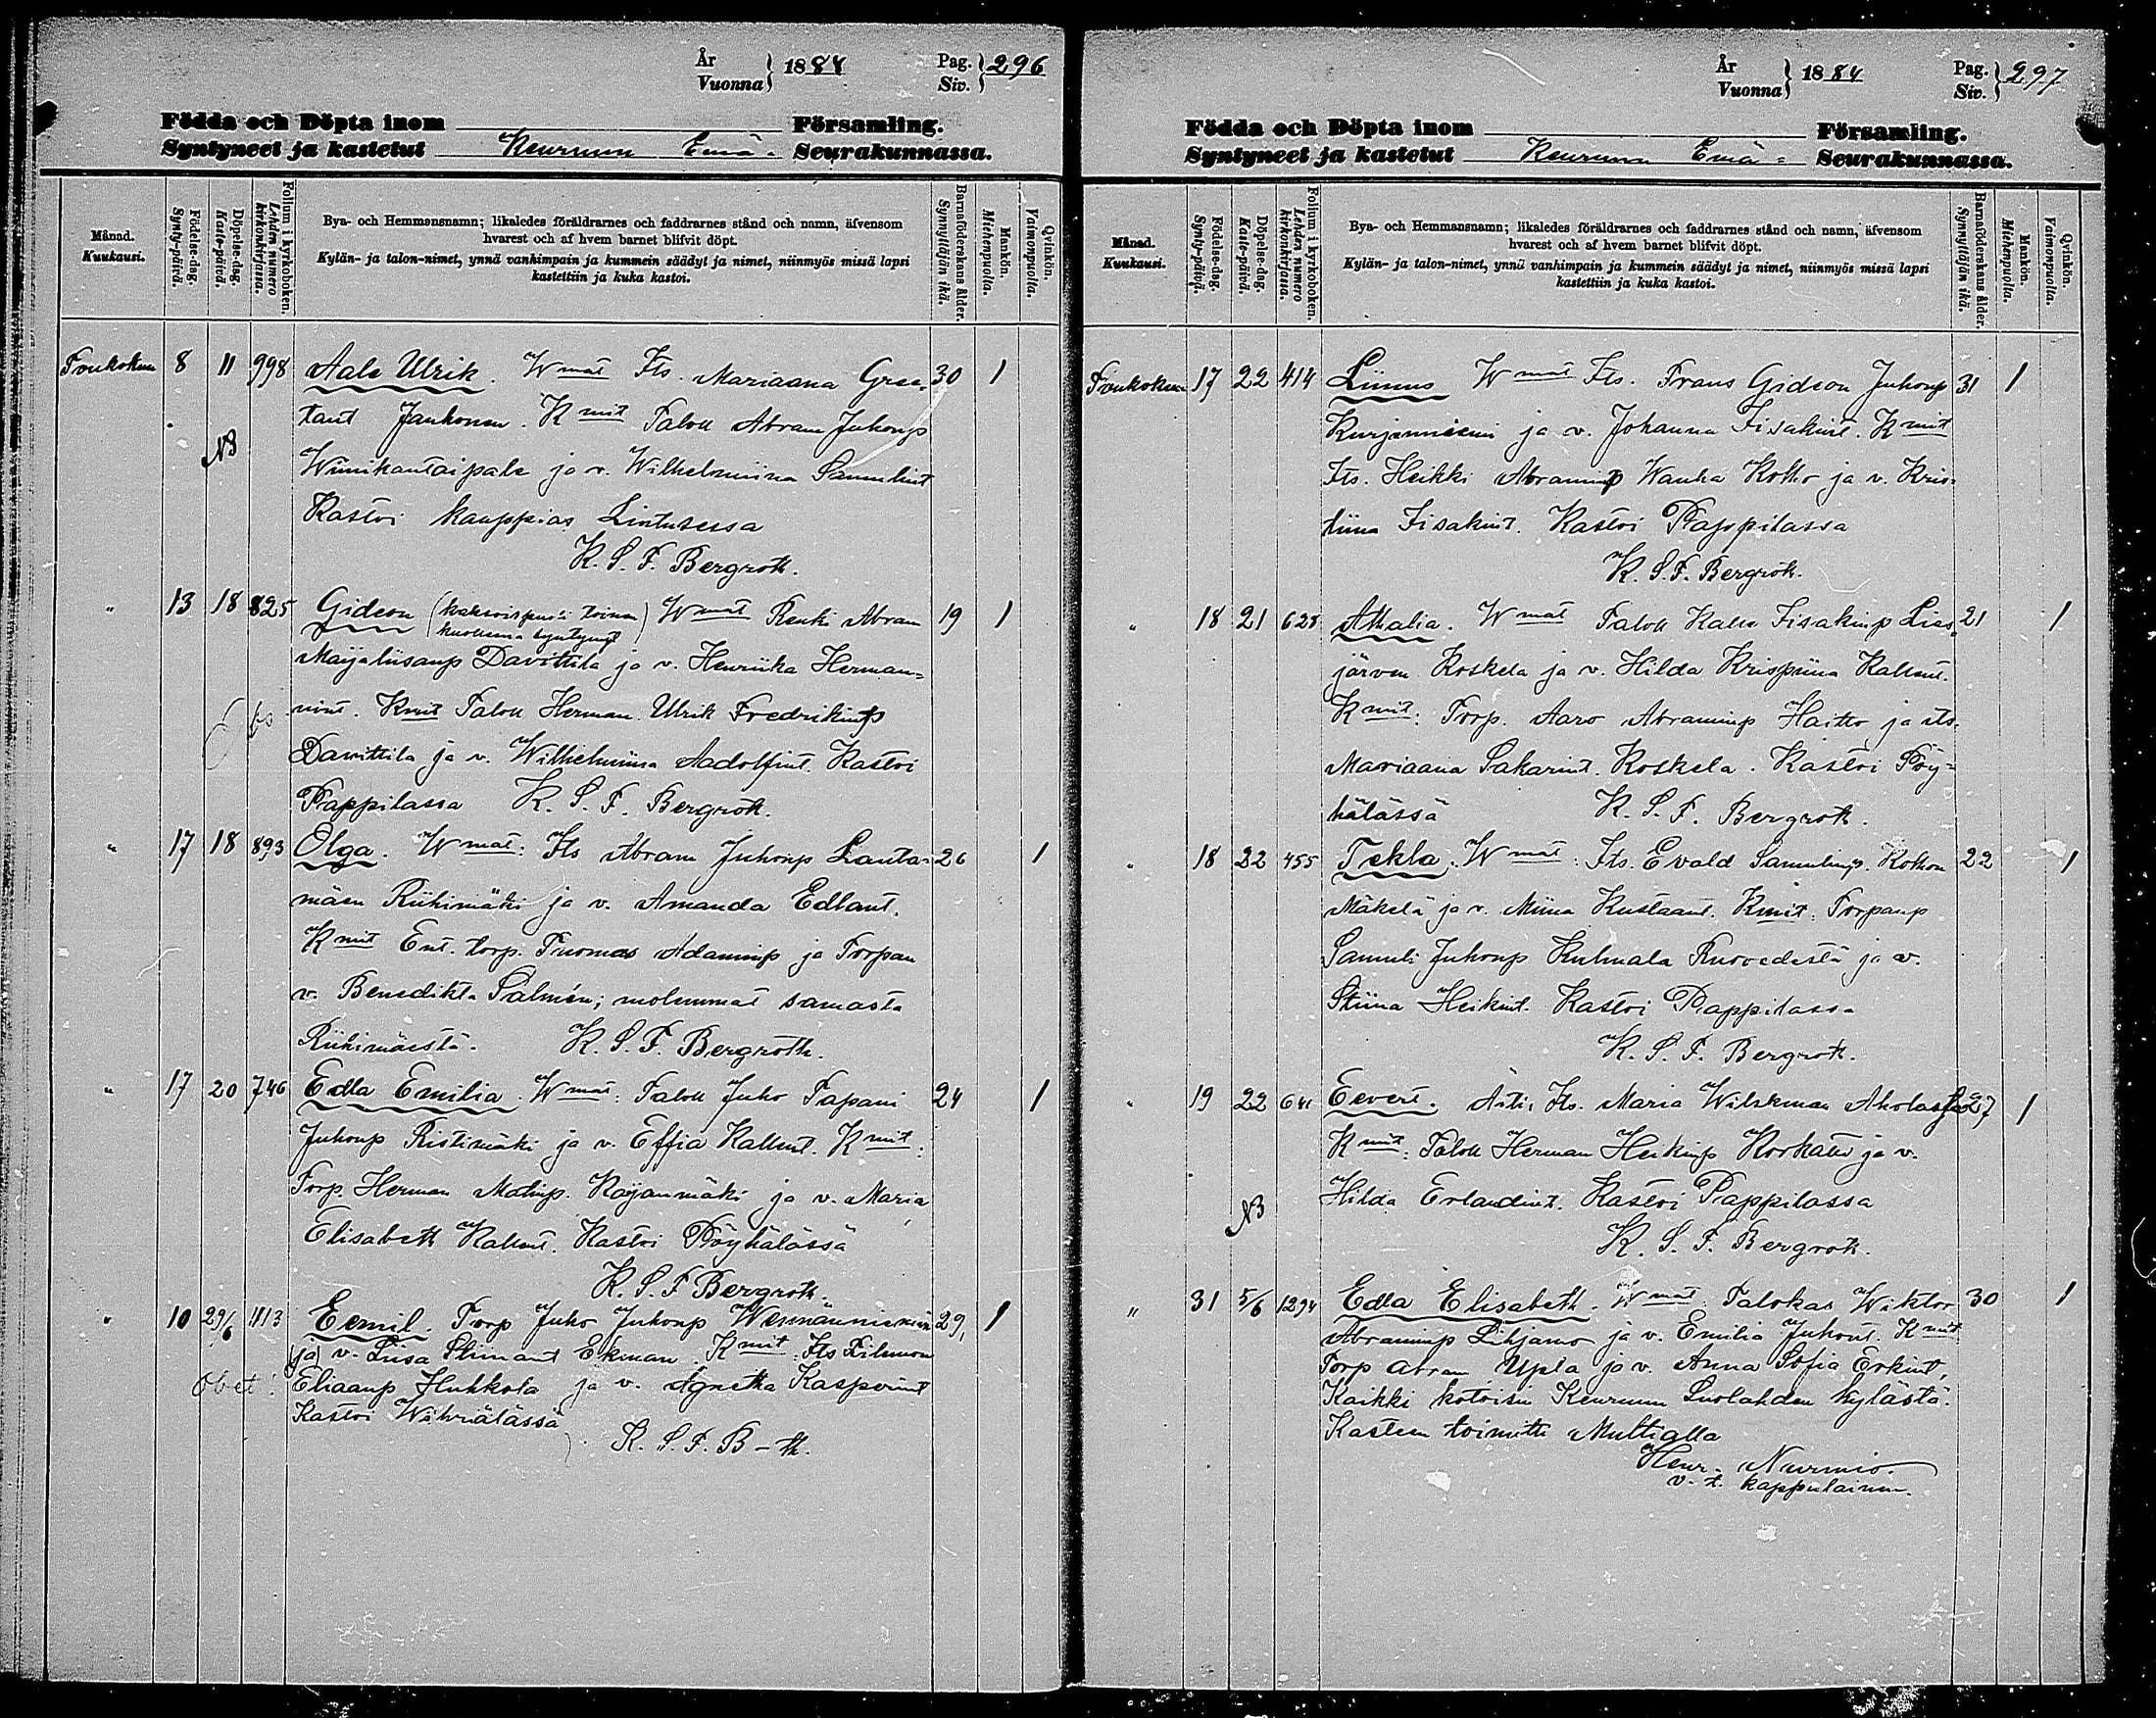 År
Vuonna } 1884
Pag.
Siv. } 296
Födda och Döpta inom Församling.
Syntyneet ja kastetut Keuruun Emä- Seurakunnassa.
Månad.
Kuukausi.
Födelse-dag.
Synty-päivä.
Döpelse-dag.
Kaste-päivä.
Folium i kyrkoboken.
Lehden numero kirkonkirjassa.
Bya- och Hemmansnamn; likaledes föräldrarnes och faddrarnes stånd och namn, äfvensom
hvarest och af hvem barnet blifvit döpt.
Kylän- ja talon-nimet, ynnä vanhimpain ja kummein säädyt ja nimet, niinmyös missä lapsi
kastettiin ja kuka kastoi.
Barnaföderskans ålder.
Synnyttäjän ikä.
Mankön.
Miehenpuolia.
Qvinkön.
Vaimonpuolia.
Toukokuu 8 11 998 Aale Ulrik. Wmat Its. Mariaana Gree- 30 1
tant Jankonen. Kmit Talon Abram Juhonp
NB
Wiinikantaipale ja v. Wilhelmiina Samulint
Kastoi kauppias Lintusessa
K. S. F. Bergroth.
" 13 18 825 Gideon (kaksoispuoli toinen) Wmat Renki Abram 19 1
kuolleena syntynyt
Maijaliisanp Davittila ja v. Henriika Herman=
nint. Kmit Talon Herman Ulrik Fredrikinp
Davittila ja v. Wilhelmiina Aadolfint. Kastoi
Pappilassa K. S. F. Bergroth.
" 17 18 893 Olga. Wmat: Its Abram Juhonp Lauta- 26 1
mäen Riihimäki ja v. Amanda Edlant.
Kmit Ent. torp. Tuomas Adaminp ja Torpan
v. Benedikta Salmén; molemmat samasta
Riihimäestä. K. S. F. Bergroth.
" 17 20 746 Edla Emilia. Wmat: Talon Juho Tapani 24 1
Juhonp Ristimäki ja v. Effia Kallent. Kmit:
Torp. Herman Matinp. Kojanmäki ja v. Maria
Elisabeth Kallent. Kastoi Pöyhälässä
K. S. F Bergroth.
" 10 29/6 1113 Eemil. Torp Juho Juhonp 29, 1
(ja) v. Liisa Ekman. Kmit: Its Filemon
Eliaanp Huhkola ja v. Agnetha Kasperint
Kastoi Wihriälässä
K. S. F. B-th.
År
Vuonna } 1884
Pag.
Siv. } 297
Födda och Döpta inom Församling.
Syntyneet ja kastetut Keuruun Emä= Seurakunnassa.
Månad.
Kuukausi.
Födelse-dag.
Synty-päivä.
Döpelse-dag.
Kaste-päivä.
Folium i kyrkoboken.
Lehden numero kirkonkirjassa.
Bya- och Hemmansnamn; likaledes föräldrarnes och faddrarnes stånd och namn, äfvensom
hvarest och af hvem barnet blifvit döpt.
Kylän- ja talon-nimet, ynnä vanhimpain ja kummein säädyt ja nimet, niinmyös missä lapsi
kastettiin ja kuka kastoi.
Barnaföderskans ålder.
Synnyttäjän ikä.
Mankön.
Miehenpuolia.
Qvinkön.
Vaimonpuolia.
Toukokuu 17 22 414 Liinus Wmat Its. Frans Gideon Juhonp 31 1
Kurjenniemi ja v. Johanna Iisakint. Kmit
Its. Heikki Abraminp Wanha Kotho ja v. Kris-
tiina Iisakint. Kastoi Pappilassa
K. S. F. Bergroth.
" 18 21 628 Athalia. Wmat Talon Kalle Iisakinp Lies- 21 1
järven Koskela ja v. Hilda Krispiina Kallent.
Kmit: Torp. Aaro Abraminp Haitto ja its.
Mariaana Sakarint. Koskela. Kastoi Pöy=
hälässä K. S. F. Bergroth.
" 18 22 455 Tekla. Wmat: Its. Evald Samulinp. Kothon 22 1
Mäkelä ja v. Miina Kustaant. Kmit: Torpanp
Samuli Juhonp Kulmala Ruovedestä ja v.
Stiina Heikint. Kastoi Pappilassa
K. S. F. Bergroth.
" 19 22 641 Eevert. Äiti, Its. Maria Wilskman 27 1
Kmit: Talon Herman Heikinp Korkatti ja v.
NB
Hilda Erlandint. Kastoi Pappilassa
K. S. F. Bergroth.
" 31 5/6 1294 Edla Elisabeth. Wmat: Talokas Wiktor 30 1
Abraminp Lihjamo ja v. Emilia Juhont. Kmit
Torp Abram Upla ja v. Anna Sofia Erkint,
Kaikki kotoisin Keuruun Suolahden kylästä.
Kasteen toimitti Multialla
Henr. Nurmio.
v. t. kappalainen.